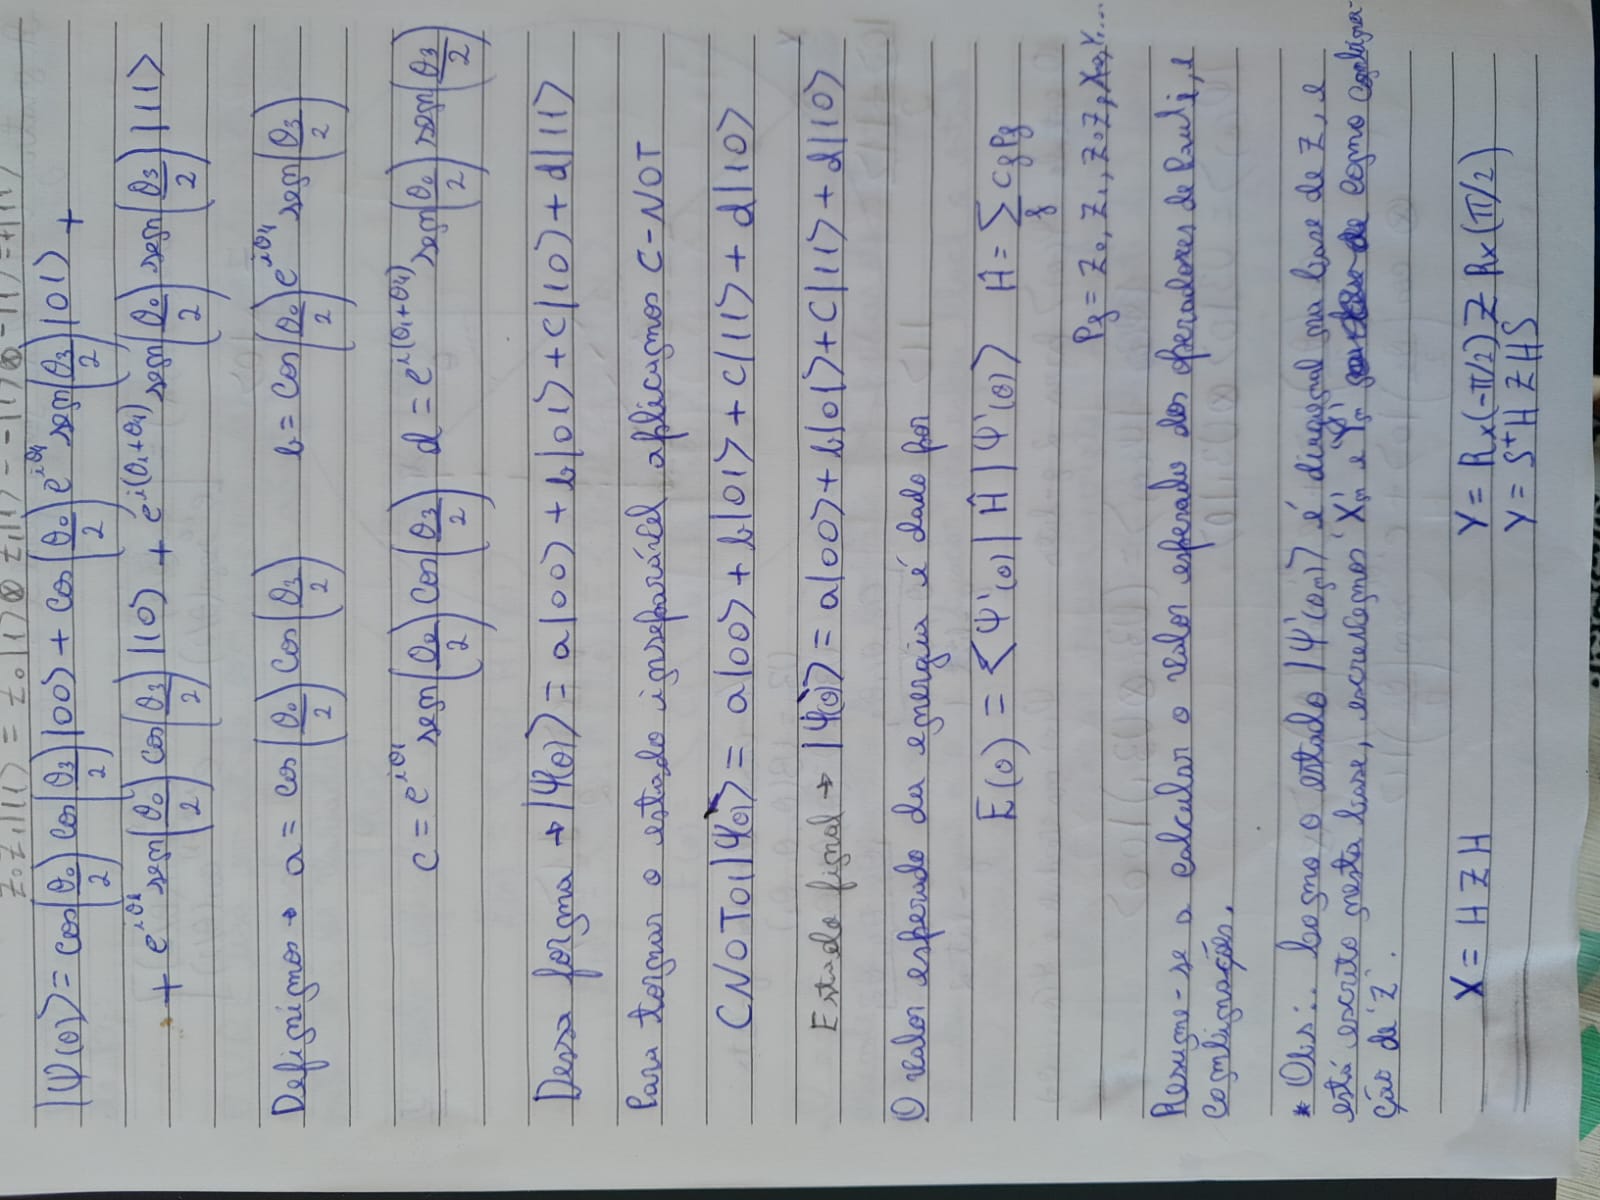 Z₀Z₁|11⟩ = Z₀|1⟩⊗Z₁|1⟩ = -|1⟩⊗-|1⟩ = +|11⟩
|Ψ(θ)⟩ = cos(θ₀/2) cos(θ₃/2)|00⟩ + cos(θ₀/2) e^{iθ₄} sen(θ₃/2)|01⟩ +
+ e^{iθ₁} sen(θ₀/2) cos(θ₃/2)|10⟩ + e^{i(θ₁+θ₄)} sen(θ₀/2) sen(θ₃/2)|11⟩
Definimos → a = cos(θ₀/2) cos(θ₃/2) b = cos(θ₀/2) e^{iθ₄} sen(θ₃/2)
c = e^{iθ₁} sen(θ₀/2) cos(θ₃/2) d = e^{i(θ₁+θ₄)} sen(θ₀/2) sen(θ₃/2)
Dessa forma → |Ψ(θ)⟩ = a|00⟩ + b|01⟩ + c|10⟩ + d|11⟩
Para tornar o estado inseparável aplicamos C-NOT
CNOT₀₁|Ψ(θ)⟩ = a|00⟩ + b|01⟩ + c|11⟩ + d|10⟩
Estado final → |Ψ'(θ)⟩ = a|00⟩ + b|01⟩ + c|11⟩ + d|10⟩
O valor esperado da energia é dado por
E(θ) = ⟨Ψ'(θ)|Ĥ|Ψ'(θ)⟩ Ĥ = ∑_j C_j P_j
P_j = Z₀, Z₁, Z₀Z₁, X₀, Y....
Resume-se a calcular o valor esperado dos operadores de Pauli, e
combinações.
* Obs:. Como o estado |Ψ'(θₙ)⟩ é diagonal na base de Z, e
está escrito nesta base, escrevemos 'Xₙ' e 'Yₙ' como combina-
ção de 'Z'.
X = H Z H Y = Rx(-π/2) Z Rx(π/2)
Y = S⁺H Z H S